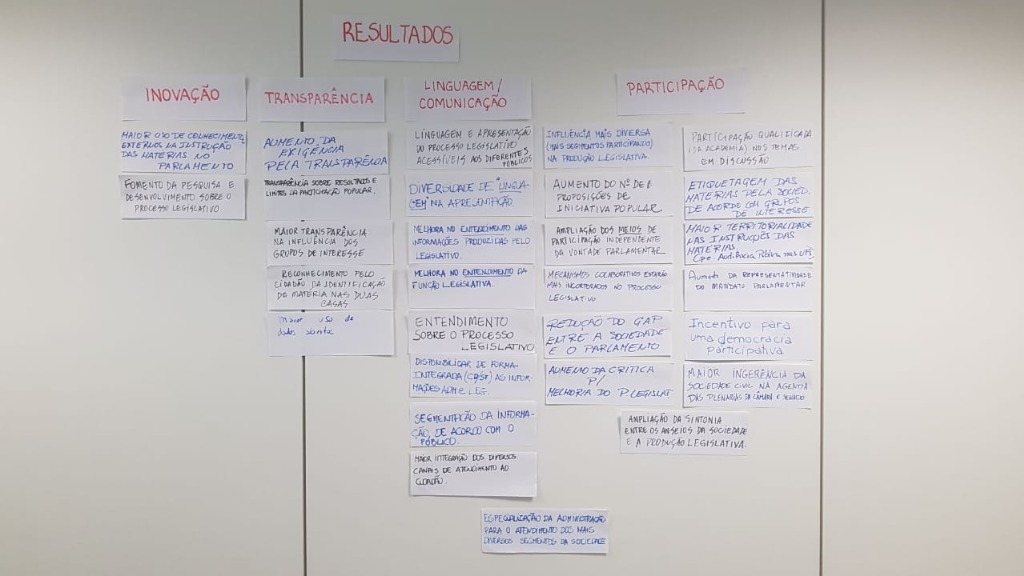 RESULTADOS
INOVAÇÃO
MAIOR USO DE CONHECIMENTOS
EXTERNOS NA INSTRUÇÃO
DAS MATÉRIAS NO
PARLAMENTO
FOMENTO DA PESQUISA E
DESENVOLVIMENTO SOBRE O
PROCESSO LEGISLATIVO
TRANSPARÊNCIA
AUMENTO DA
EXIGÊNCIA
PELA TRANSPARÊNCIA
TRANSPARÊNCIA SOBRE RESULTADOS E
LIMITES DA PARTICIPAÇÃO POPULAR.
MAIOR TRANSPARÊNCIA
NA INFLUÊNCIA DOS
GRUPOS DE INTERESSE
RECONHECIMENTO PELO
CIDADÃO DA IDENTIFICAÇÃO
DE MATÉRIA NAS DUAS
CASAS
Maior uso de
dados abertos
LINGUAGEM/
COMUNICAÇÃO
LINGUAGEM E APRESENTAÇÃO
DO PROCESSO LEGISLATIVO
ACESSÍVEIS AOS DIFERENTES
PÚBLICOS
DIVERSIDADE DE "LINGUA-
GEM" NA APRESENTAÇÃO.
MELHORA NO ENTENDIMENTO DAS
INFORMAÇÕES PRODUZIDAS PELO
LEGISLATIVO.
MELHORA NO ENTENDIMENTO DA
FUNÇÃO LEGISLATIVA.
ENTENDIMENTO
SOBRE O PROCESSO
LEGISLATIVO
DISPONIBILIZAR DE FORMA
INTEGRADA (CD/SF) AS INFOR-
MAÇÕES ADM E LEG.
SEGMENTAÇÃO DA INFORMA-
ÇÃO, DE ACORDO COM O
PÚBLICO.
MAIOR INTEGRAÇÃO DOS DIVERSOS
CANAIS DE ATENDIMENTO AO
CIDADÃO.
PARTICIPAÇÃO
INFLUÊNCIA MAIS DIVERSA
(MAIS SEGMENTOS PARTICIPANDO)
NA PRODUÇÃO LEGISLATIVA.
AUMENTO DO Nº DE
PROPOSIÇÕES DE
INICIATIVA POPULAR
AMPLIAÇÃO DOS MEIOS DE
PARTICIPAÇÃO INDEPENDENTE
DA VONTADE PARLAMENTAR.
MECANISMOS COLABORATIVOS ESTARÃO
MAIS INCORPORADOS NO PROCESSO
LEGISLATIVO
REDUÇÃO DO GAP
ENTRE A SOCIEDADE
E O PARLAMENTO
AUMENTO DA CRÍTICA
P/
MELHORIA DO P. LEGISLAT
PARTICIPAÇÃO QUALIFICADA
(DA ACADEMIA) NOS TEMAS
EM DISCUSSÃO
ETIQUETAGEM DAS
MATÉRIAS PELA SOCIED.
DE ACORDO COM GRUPOS
DE INTERESSE
MAIOR TERRITORIALIDADE
NAS INSTRUÇÕES DAS
MATÉRIAS
Audiência Pública nas
Aumento DA REPRESENTATIVIDADE
DO MANDATO PARLAMENTAR
Incentivo para
uma democracia
participativa
MAIOR INGERÊNCIA DA
SOCIEDADE CIVIL NA AGENDA
DAS PLENÁRIAS DA CÂMARA E SENADO
AMPLIAÇÃO DA SINTONIA
ENTRE OS ANSEIOS DA SOCIEDADE
E A PRODUÇÃO LEGISLATIVA.
ESPECIALIZAÇÃO DA ADMINISTRAÇÃO
PARA O ATENDIMENTO DOS MAIS
DIVERSOS SEGMENTOS DA SOCIEDADE